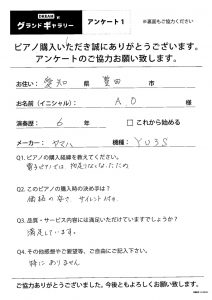 グランドギャラリー
アンケート1
※裏面もご協力ください
ピアノ購入いただき誠にありがとうございます。
アンケートのご協力お願い致します。
お住い: 愛知 県 豊田 市
お名前(イニシャル): A.O 様
演奏歴: 6 年 □ これから始める
メーカー: ヤマハ 機種: YU3S
Q1. ピアノの購入経緯を教えてください。
電子ピアノでは、物足りなくなったため
Q2. このピアノの購入時の決め手は?
価格の安さ サイレント付き.
Q3. 品質・サービス内容には満足いただけていますでしょうか?
満足しています。
Q4. その他感想やご要望等、ご自由にご記入下さい。
特にありません
ご協力ありがとうございました。今後ともよろしくお願い致します。